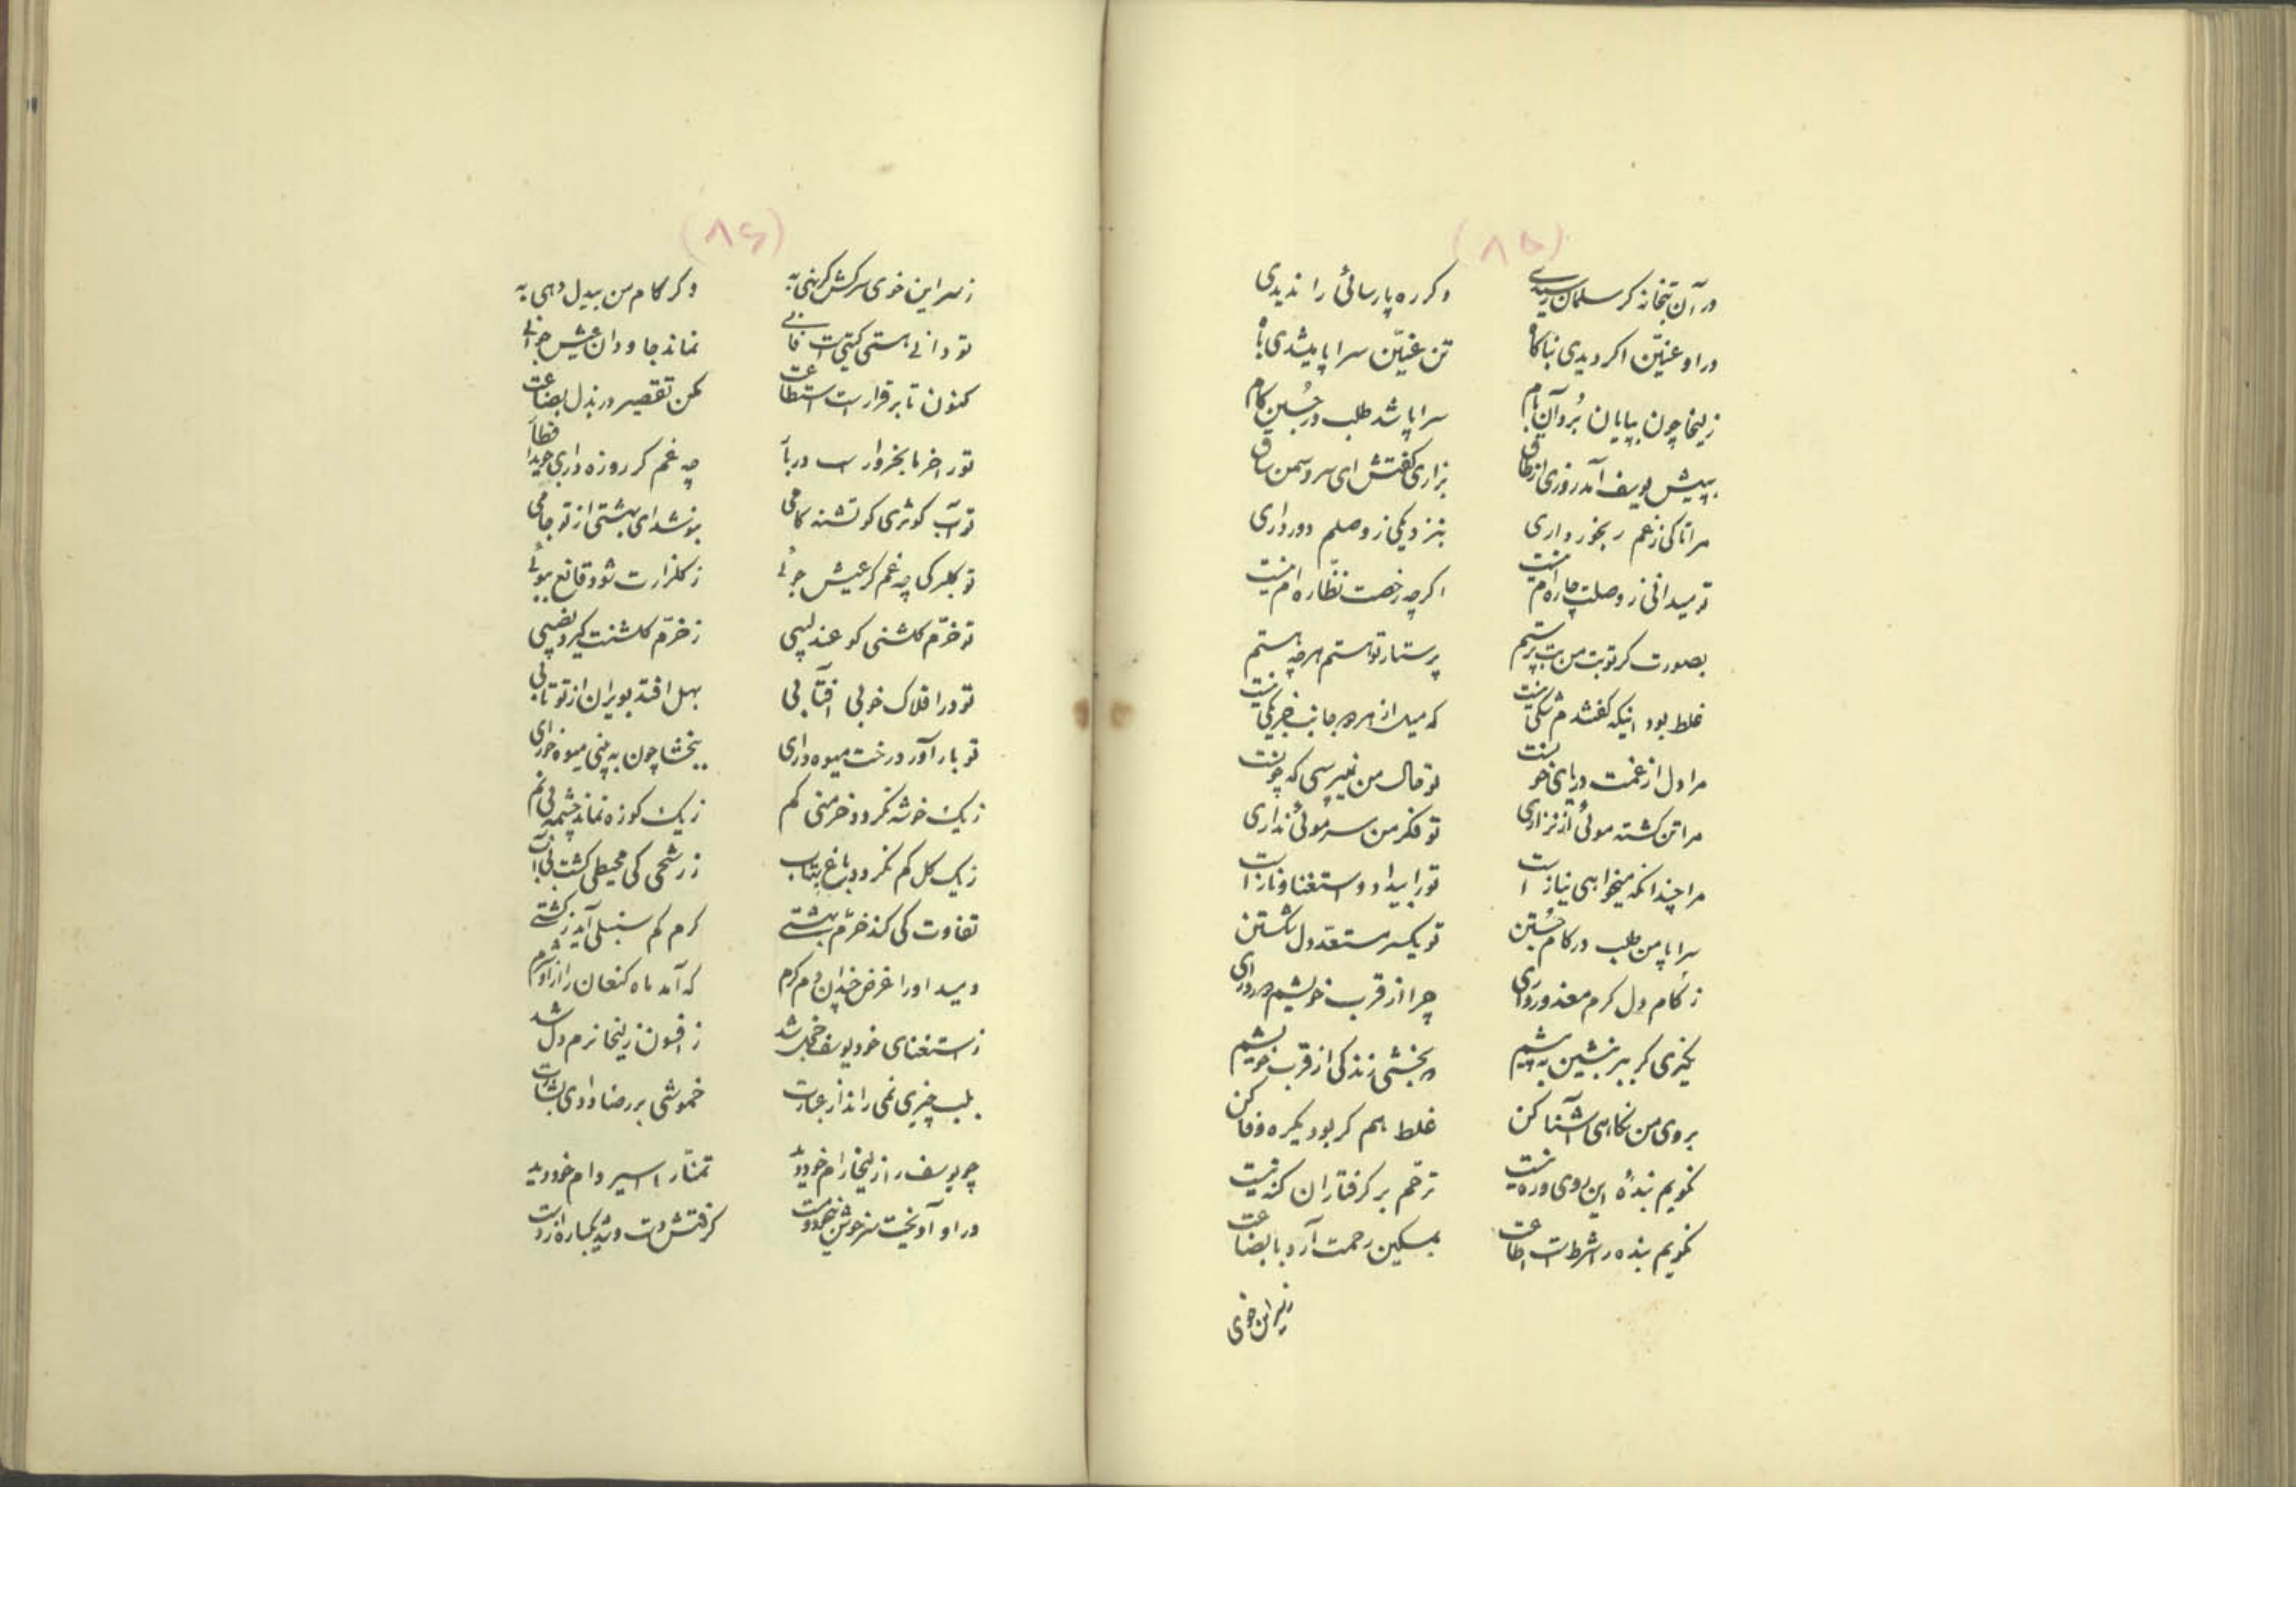 (۸۵)
در آن بتخانه کر سلمان رسیدی وکر ره پارسائی را ندیدی
در او عنّین اکر دیدی بناکاه تن عنّین سراپا میشدی باه
زلیخا چون بپایان برد آن بام سراپا شد طلب در جستن کام
به پیش یوسف آمد روزی از طاق بزاری کفتش ای سرو سمن ساق
مرا تا کی ز غم رنجور داری بنزدیکی ز وصلم دور داری
تو میدانی ز وصلت چاره ام نیست اکرچه رخصت نظّاره ام نیست
بصورت کر تو بت من بت پرستم پرستار تو هستم هرچه هستم
غلط بود اینکه کفتندم شکی نیست که میل از هر دو جانب جز یکی نیست
مرا دل از غمت دریای خونست تو حال من نمیپرسی که چونست
مرا تن کشته موئی از نزاری تو فکر من سر موئی نداری
مرا چندانکه میخواهی نیاز است تو را بیداد و استغنا و ناز است
سراپا من طلب در کام جستن تو یکسر مستعدّ دل شکستن
ز کام دل کرم معذور داری چرا از قرب خویشم دور داری
نخیزی کر ببر بنشین به پیشم ببخشی زندکی از قرب خویشم
بروی من نکاهی آشنا کن غلط هم کر بود یکره وفا کن
نکویم بندهٔ این روی و ره نیست ترحّم بر کرفتاران کنه نیست
نکویم بنده را شرط است اطاعت بمسکین رحمت آرد با بضاعت
ز سر این خوی
(۸۶)
ز سر این خوی سرکش کر نهی به وکر کام من بیدل دهی به
تو دانی هستی کیتی است فانی نماند جاودان عیش جوانی
کنون تا برقرار است استطاعت مکن تقصیر در بذل بضاعت
تو را خرما بخروار است در بار چه غم کر روزه داری جوید افطار
تو آب کوثری کو تشنه کامی بنوشد ای بهشتی از تو جامی
تو کلبرکی چه غم کر عیش جوئی ز کلزارت شود قانع ببوئی
تو خرّم کلشنی کو عندلیبی ز خرّم کلشنت کیرد نصیبی
تو در افلاک خوبی آفتابی بهل افتد بویران از تو تابی
تو بارآور درخت میوه داری ببخشا چون به بینی میوه خواری
ز یک خوشه نکردد خرمنی کم ز یک کوزه نماند چشمه بی نم
ز یک کل کم نکردد باغ بیتاب ز رشحی کی محیطی کشت بی آب
تفاوت کی کند خرّم بهشتی کرم کم سنبلی آید ز کشتی
دمید او را غرض چندان دم کرم که آمد ماه کنعان را ز او شرم
ز استغنای خود یوسف خجل شد ز افسون زلیخا نرم دل شد
بلب چیزی نمی راند از عبارت خموشی بر رضا دادی بشارت
چو یوسف را زلیخا رام خود دید تمنّا را اسیر دام خود دید
در او آویخت سرخوش همچو مست کرفتش دست و شد یکباره از دست